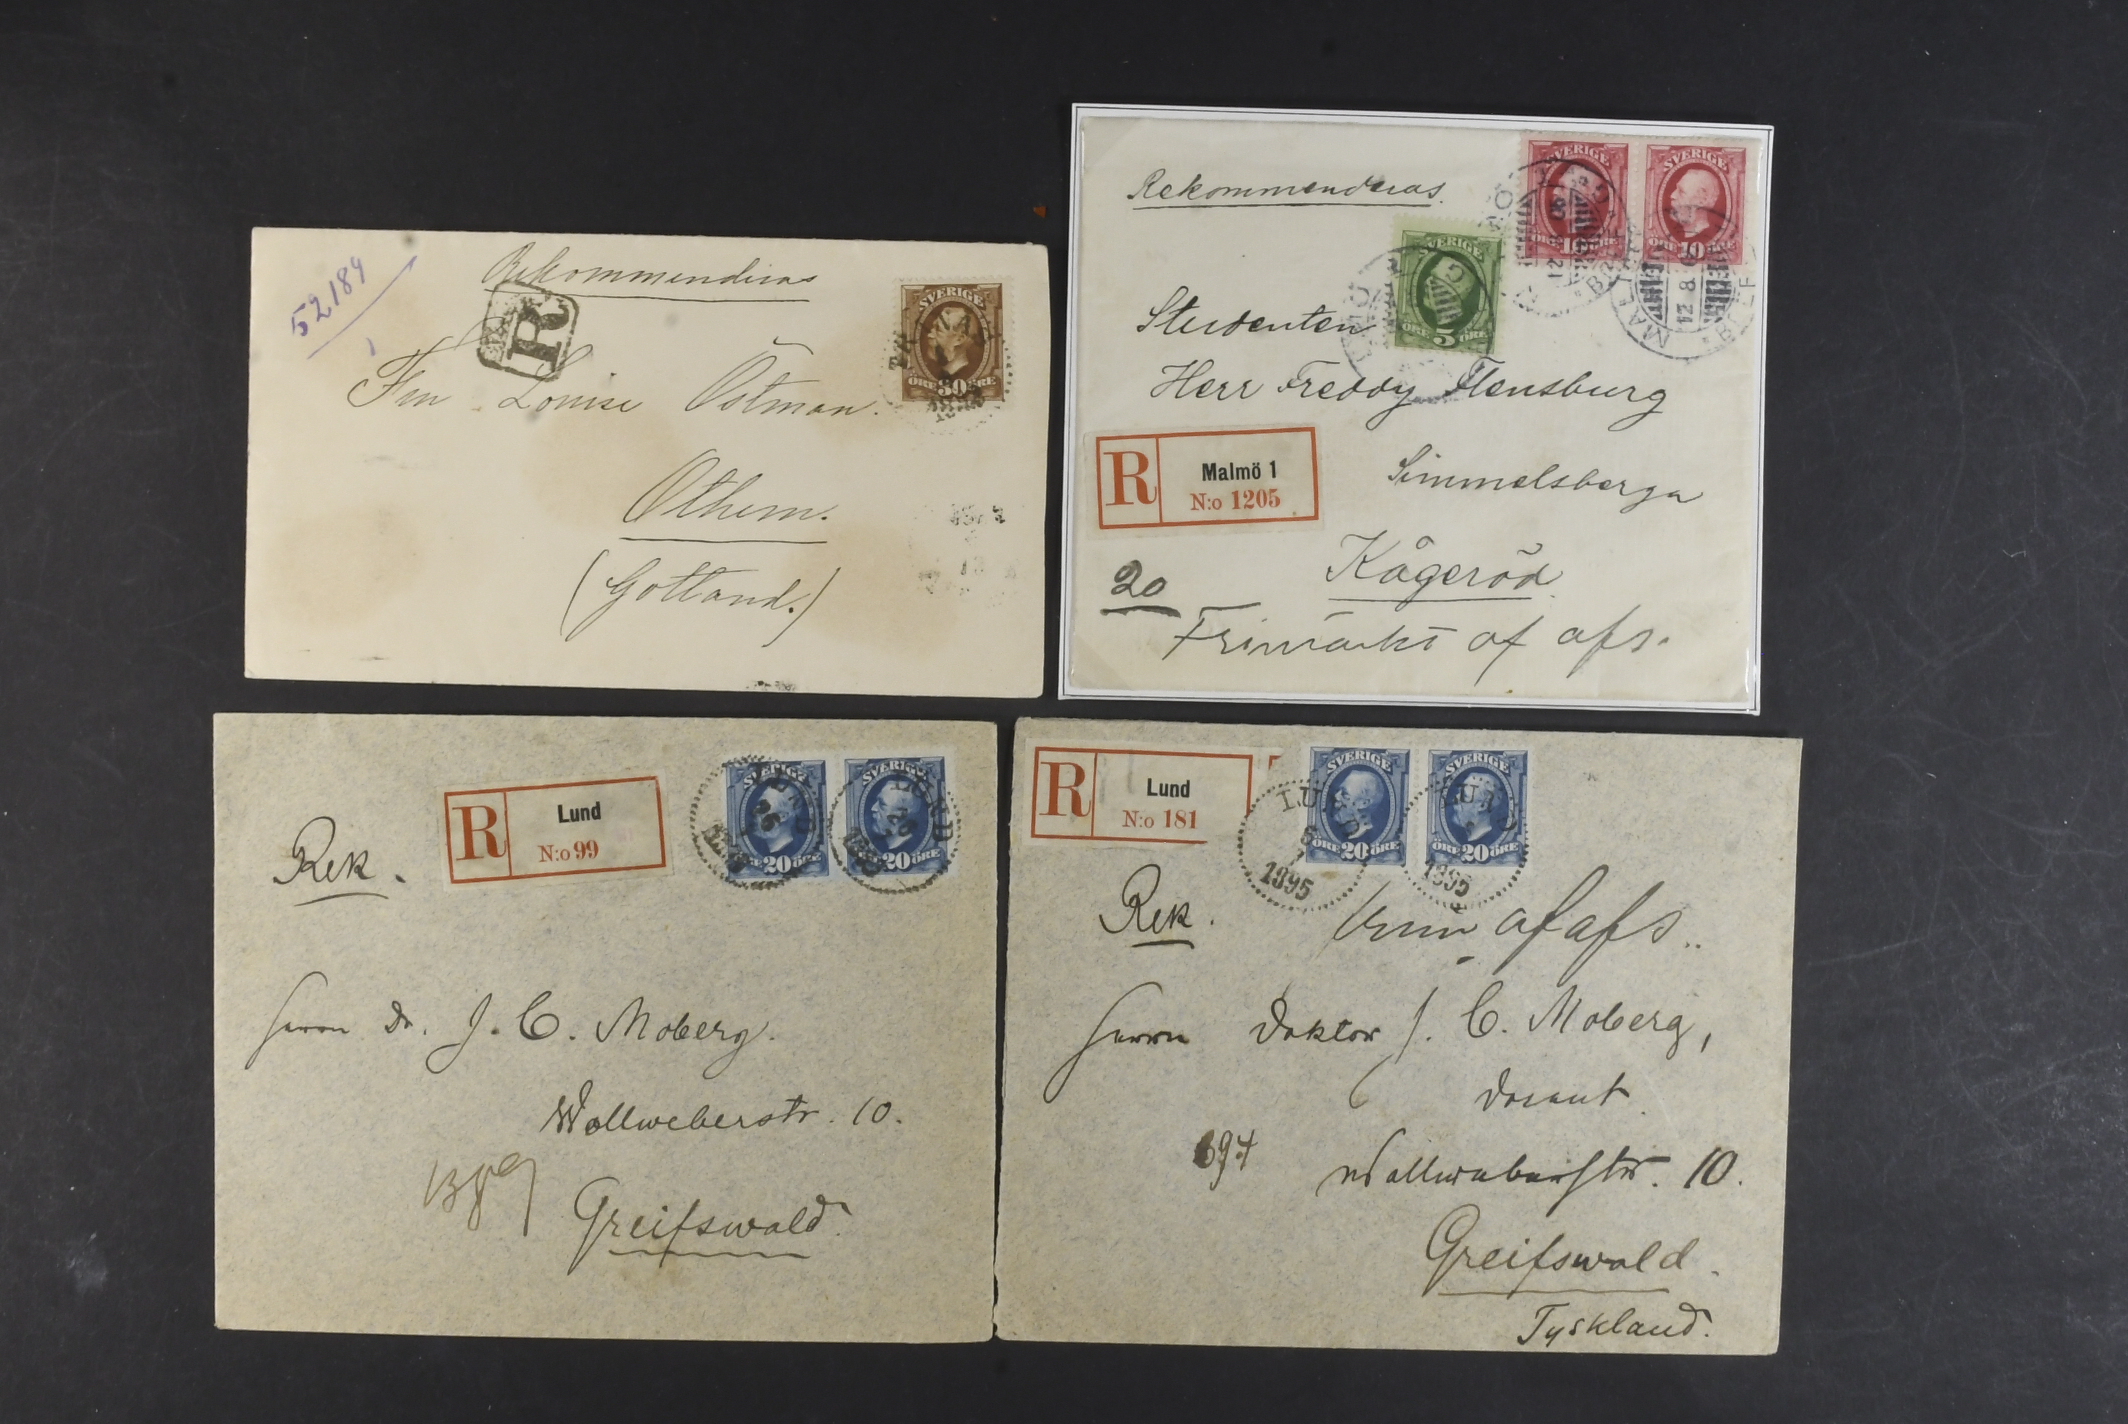 52184
Rekommenderas
R
SVERIGE
ÖRE 30 ÖRE
Louise Östman.
Othem.
(Gotland.)
Rekommenderas.
SVERIGE
ÖRE 10 ÖRE
SVERIGE
ÖRE 10 ÖRE
SVERIGE
ÖRE 5 ÖRE
Studenten
Herr Freddy Flensburg
Simmelsberga
Kågeröd
R
Malmö 1
N:o 1205
20
Frimärkt af afs.
R
Lund
N:o 99
SVERIGE
ÖRE 20 ÖRE
SVERIGE
ÖRE 20 ÖRE
LUND
LUND
Rek.
Herrn Dr. J. C. Moberg.
Wollweberstr. 10.
Greifswald.
R
Lund
N:o 181
SVERIGE
ÖRE 20 ÖRE
SVERIGE
ÖRE 20 ÖRE
LUND
1895
LUND
1895
Rek.
af afs..
Herrn Doktor J. C. Moberg,
Docent.
697
Wollweberstr. 10.
Greifswald.
Tyskland.